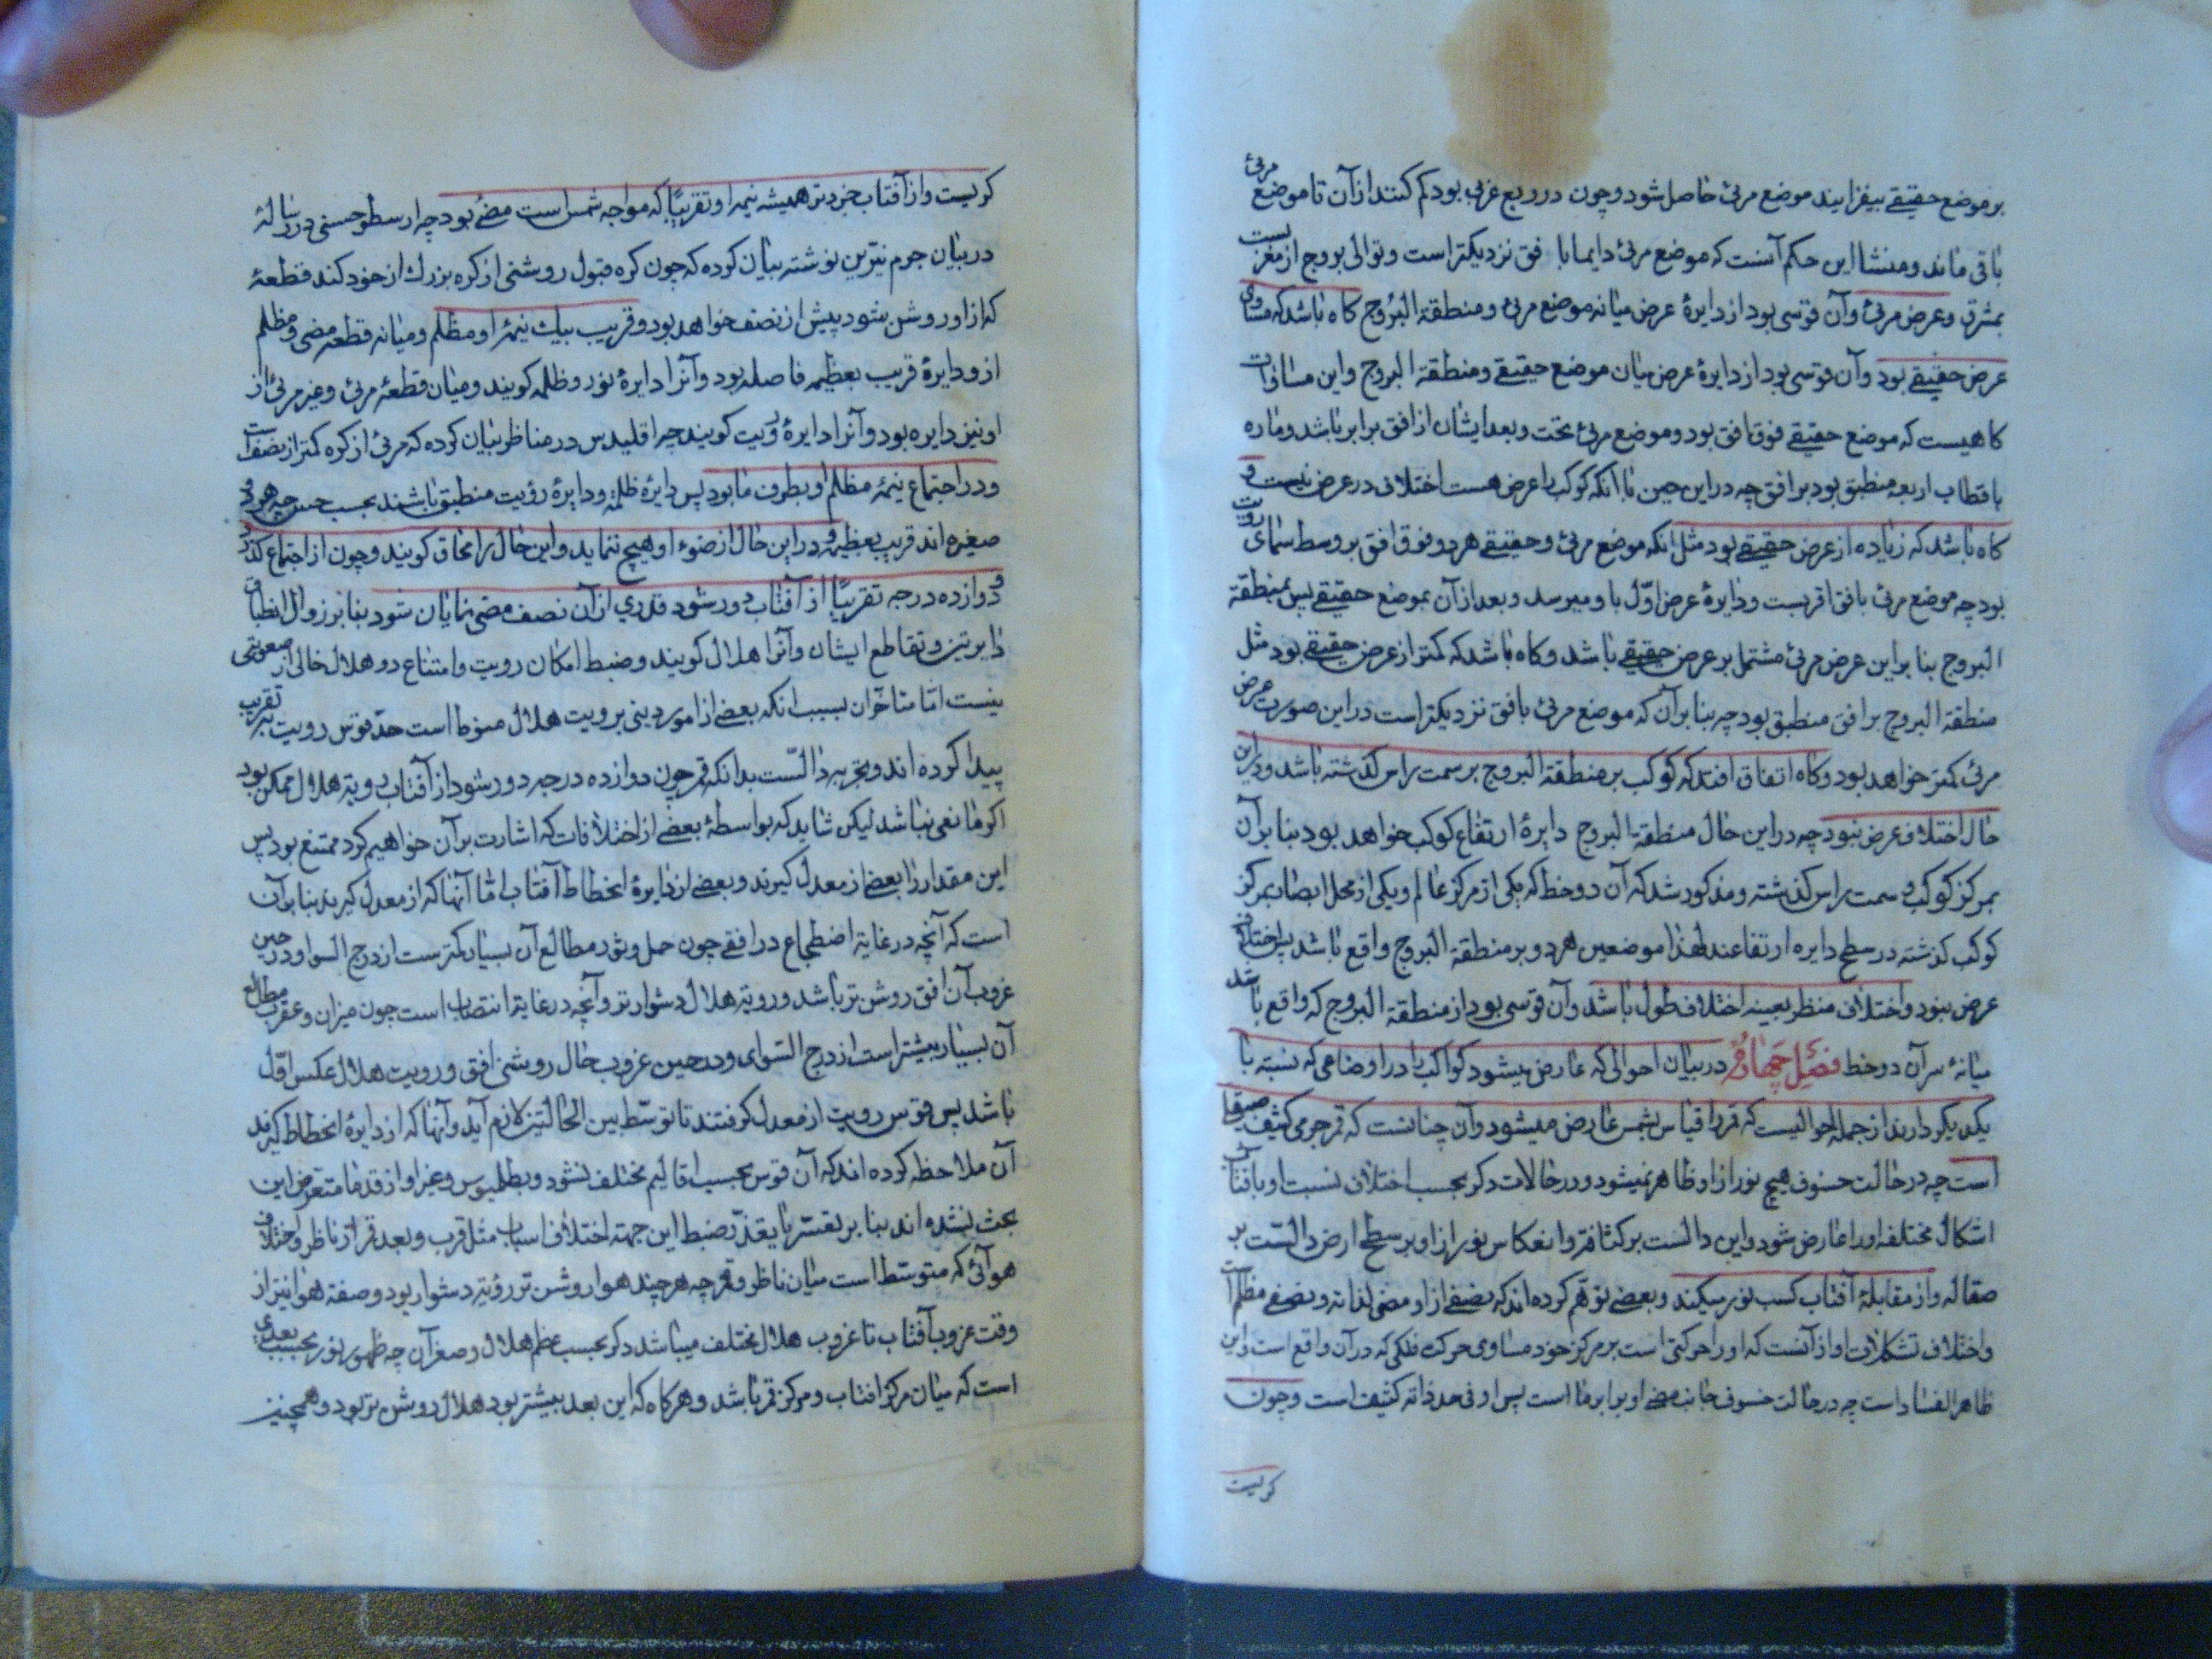 بر موضع حقیقے بیفزایند موضع مرئ حاصل شود و چون در ربع غربی بود کم کنند از آن تا موضع مرئ
باقی ماند و منشا این حکم آنست که موضع مرئ دایما بافق نزدیکتر است و توالی بروج از مغربست
بمشرق و عرض مرئ و آن قوسی بود از دایرهٔ عرض میانه موضع مرئ و منطقة البروج کاه باشد که مساوی
عرض حقیقے بود و آن قوسی بود از دایرهٔ عرض میان موضع حقیقے و منطقة البروج و این مساوات
کاهیست که موضع حقیقے فوق افق بود و موضع مرئ تحت و بعد ایشان از افق برابر باشد و ماره
باقطاب اربعه منطبق بود بر افق چه در این حین با آنکه کوکب را عرض هست اختلافی در عرض نیست و
کاه باشد که زیاده از عرض حقیقے بود مثل انکه موضع مرئ و حقیقے هر دو فوق افق بر وسط سمای رویت
بود چه موضع مرئ بافق اقربست و دایرهٔ عرض اوّل باو میرسد و بعد از آن بموضع حقیقے پس بمنطقة
البروج بنا بر این عرض مرئ مشتمل بر عرض حقیقے باشد و کاه باشد که کمتر از عرض حقیقے بود مثل
منطقة البروج بر افق منطبق بود چه بنا بر آن که موضع مرئ بافق نزدیکتر است در این صورت عرض
مرئ کمتر خواهد بود و کاه اتفاق افتد که کوکب بر منطقة البروج بر سمت راس کذشته باشد و در این
حال اختلاف عرض نبود چه در این حال منطقة البروج دایرهٔ ارتفاع کوکب خواهد بود بنا بر آن
بمرکز کوکب و سمت راس کذشته و مذکور شد که آن دو خط که یکی از مرکز عالم و یکی از محل ابصار بمرکز
کوکب کذشته در سطح دایره ارتفاعند لهذا موضعین هر دو بر منطقة البروج واقع باشد پس اختلاف
عرض نبود و اختلاف منظر بعینه اختلاف طول باشد و آن قوسی بود از منطقة البروج که واقع باشد
میانهٔ سر آن دو خط فصل چهارم در بیان احوالی که عارض میشود کواکب را در اوضاعی که نسبة با
یکدیکر دارند از جمله احوالیست که قمر را قیاس بشمس عارض میشود و آن چنانست که قمر جرمی کثیف صیقلی
است چه در حالت خسوف هیچ نور از او ظاهر نمیشود و در حالات دکر بحسب اختلاف نسبت او بافتاب
اشکال مختلفه او را عارض شود و این دالست بر کثافت و انعکاس نور از او بر سطح ارض دالست بر
صقاله و از مقابلهٔ آفتاب کسب نور میکند و بعضے توهّم کرده اند که نصفے از او مضی لذاته و نصفے مظلم است
و اختلاف تشکلات او از آنست که او را حرکتی است بر مرکز خود مساوی حرکت فلکی که در آن واقع است و این
ظاهر الفساد است چه در حالت خسوف جانب مضے او برابر ما است پس او فی حد ذاته کثیف است و چون
کریست
کریست و از آفتاب خردتر همیشه نیمه او تقریبًا که مواجه شمس است مضے بود چه ارسطوخسی در رسالهٔ
در بیان جرم نیّرین نوشته بیان کرده که چون کره قبول روشنی از کره بزرك از خود کند قطعهٔ
که از او روشن شود بیش از نصف خواهد بود و قریب بیك نیمهٔ او مظلم و میانه قطعه مضی و مظلم
از و دایرهٔ قریب بعظیمه فاصله بود و آنرا دایرهٔ نور و ظلمه کویند و میان قطعهٔ مرئ و غیر مرئ از
او نیز دایره بود و آنرا دایرهٔ رویت کویند چه اقلیدس در مناظر بیان کرده که مرئ از کره کمتر از نصف است
و در اجتماع نیمهٔ مظلم او بطرف ما بود پس دایرهٔ ظلمة و دایرهٔ رؤیت منطبق باشند بحسب حس چه هر دو
صغیره اند قریب بعظیمه و در این حال از ضوء او هیچ ننماید و این حال را محاق کویند و چون از اجتماع کذرد و
دوازده درجه تقریبًا از آفتاب دور شود قدری از آن نصف مضی نمایان شود بنا بر زوال انطباق
دایرتین و تقاطع ایشان و آنرا هلال کویند و ضبط امکان رویت و امتناع در هلال خالی از صعوبتی
نیست امّا متاخّران بسبب انکه بعضے از امور دینی برویت هلال منوط است حدّ قوس رویت بتقریب
پیدا کرده اند و تجربه دالست بدانکه قمر چون دوازده درجه دور شود از آفتاب رویة هلال ممکن بود
اکر مانعی نباشد لیکن شاید که بواسطهٔ بعضے از اختلافات که اشارت بر آن خواهیم کرد ممتنع بود پس
این مقدار را بعضے از معدل کیرند و بعضے از دایرهٔ انحطاط آفتاب امّا آنها که از معدل کیرند بنا بر آن
است که آنچه در غایة اضطجاع در افقے چون حمل و ثور مطالع آن بسیار کمترست از درج السوا و در حین
غروب آن افق روشن تر باشد و رویة هلال دشوارتر و آنچه در غایة انتصاب است چون میزان و عقرب مطالع
آن بسیار بیشتر است از درج السّوای و در حین غروب حال روشنی افق و رویت هلال عکس اوّل
باشد پس قوس رویت از معدل کرفتند تا توسّط بین الحالتین لازم آید و آنها که از دایرهٔ انحطاط کیرند
آن ملاحظه کرده اند که آن قوس بحسب اقالیم مختلف نشود و بطلمیوس و غیر او از قدما متعرض این
بحث نشده اند بنا بر تعسّر یا تعذّر ضبط این جهته اختلاف اسباب مثل قرب و بعد قمر از ناظر و اختلاف
هوائی که متوسّط است میان ناظر و قمر چه هر چند هوا روشن تر رؤیة دشوار بود و صفة هوا نیز از
وقت غروب آفتاب تا غروب هلال مختلف میباشد دکر بحسب عظم هلال و صغر آن چه ظهور نور بحسب بعدی
است که میان مرکز افتاب و مرکز قمر باشد و هر کاه که این بعد بیشتر بود هلال روشن تر بود و همچنین